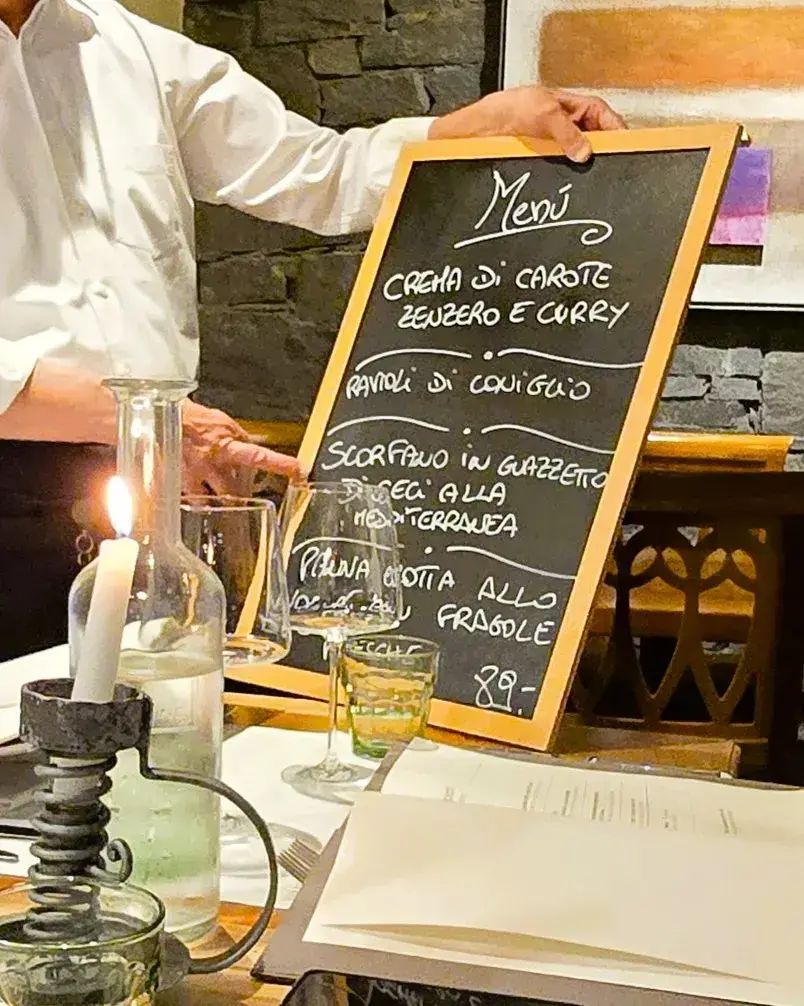 Menú
CREMA DI CAROTE
ZENZERO E CURRY
RAVIOLI DI CONIGLIO
SCORFANO IN GUAZZETTO
DI CECI ALLA
MEDITERRANEA
PANNA COTTA ALLO
FRAGOLE
89.-